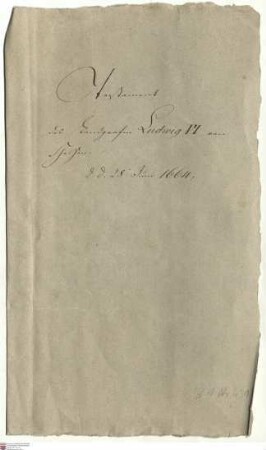 Testament
des Landgrafen Ludwig VI von
Hessen.
d. d. 28 Juni 1664.